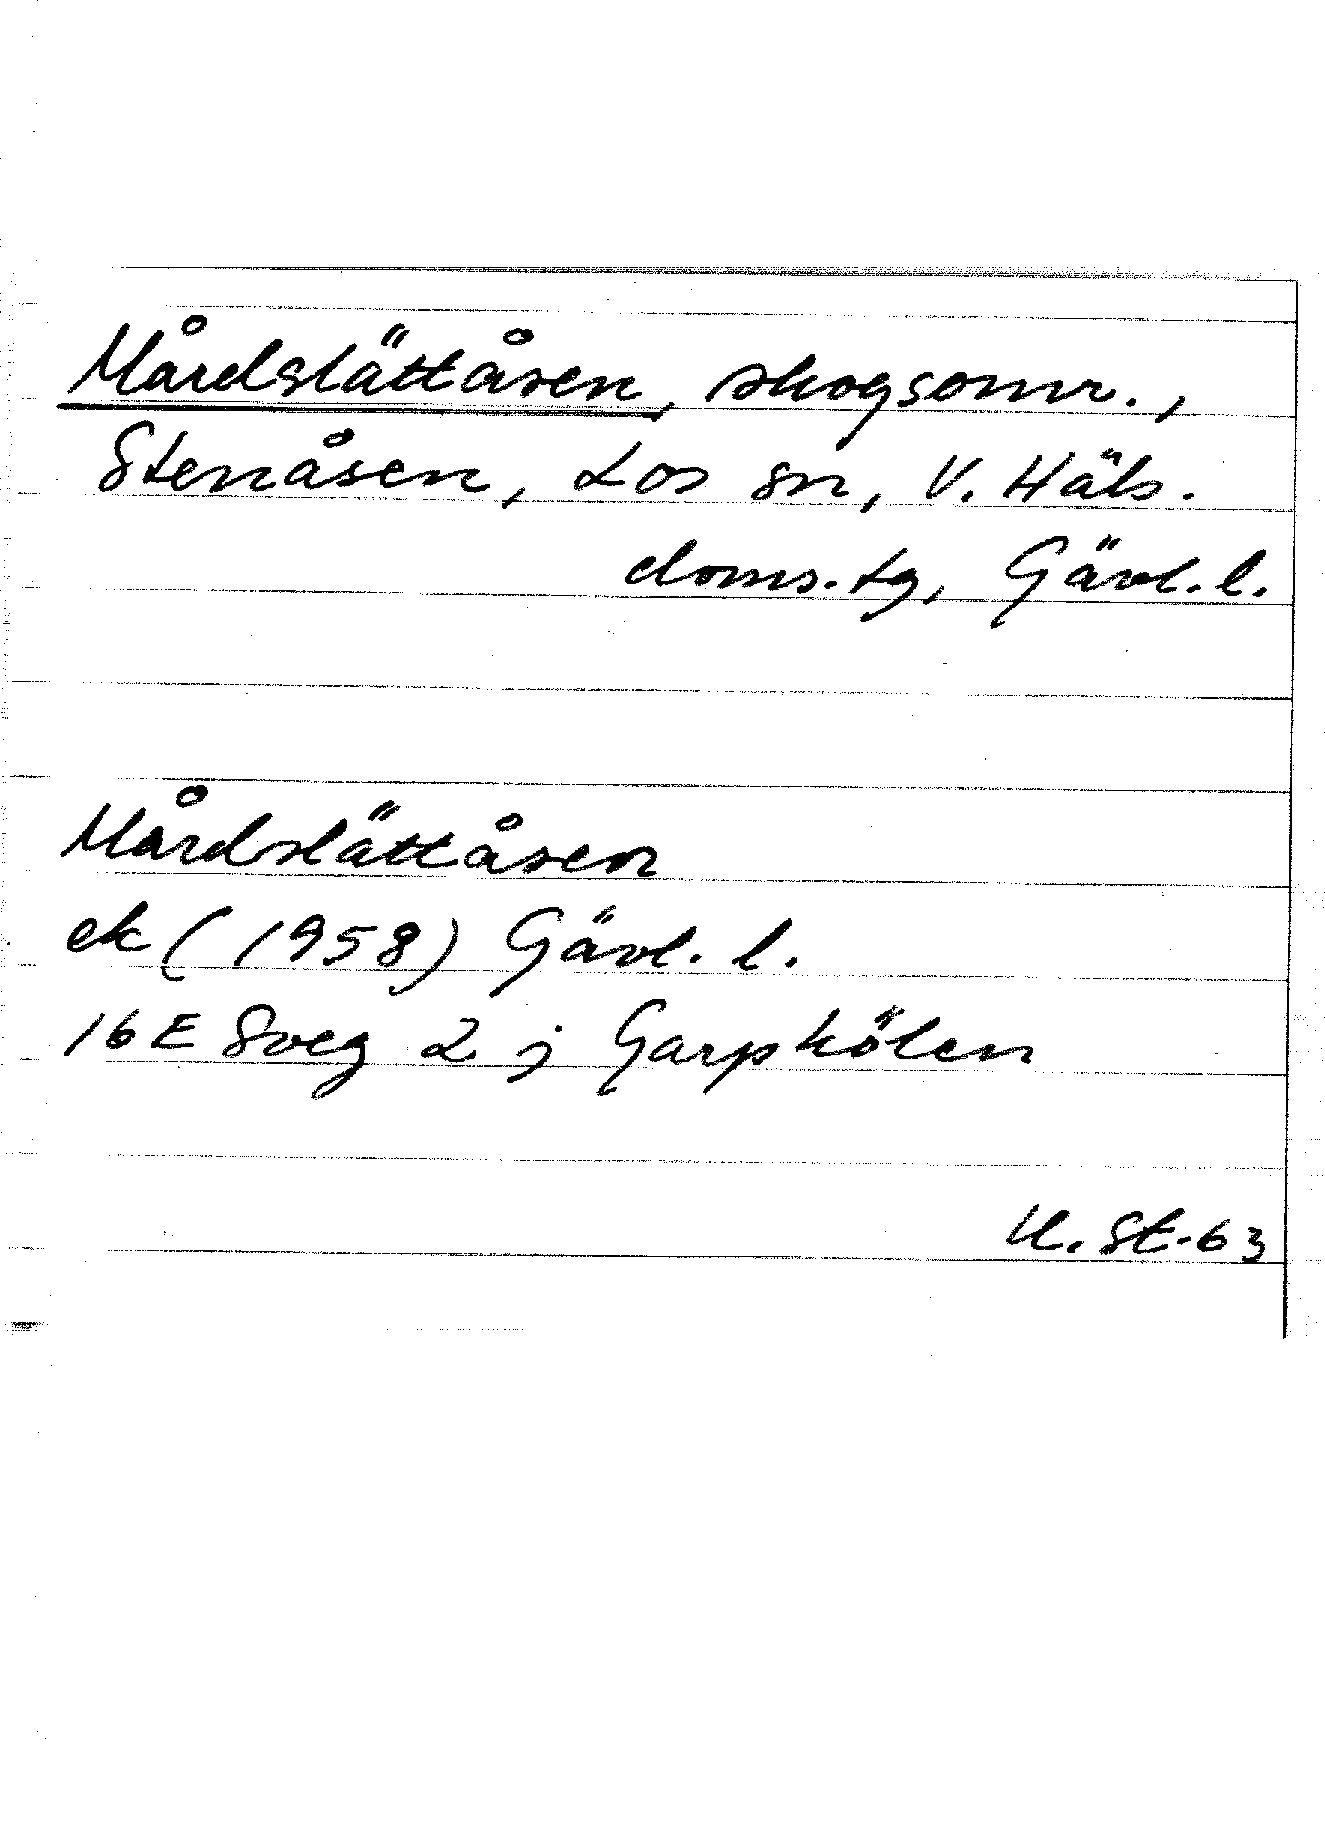 Mårdslättåsen, skogsomr.,
Stenåsen, Los sn, V. Häls.
doms.tg, Gävl. l.
Mårdslättåsen
ek (1958) Gävl. l.
16 E Sveg 2 j Garpkölen
U. St-63